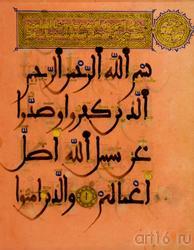 بسم الله الرحمن الرحيم
الذين كفروا وصدوا
عن سبيل الله أضل
أعمالهم والذين آمنوا
art16.ru